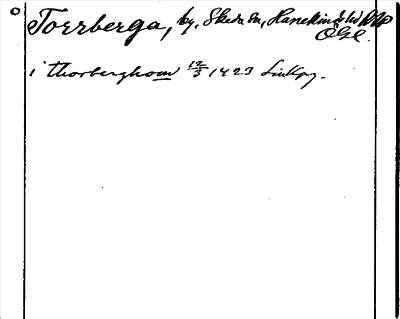 Torrberga, by, Skeda sn, Hanekinds hd
ÖGL.
i thorberghom 12/3 1423 Linkpg.